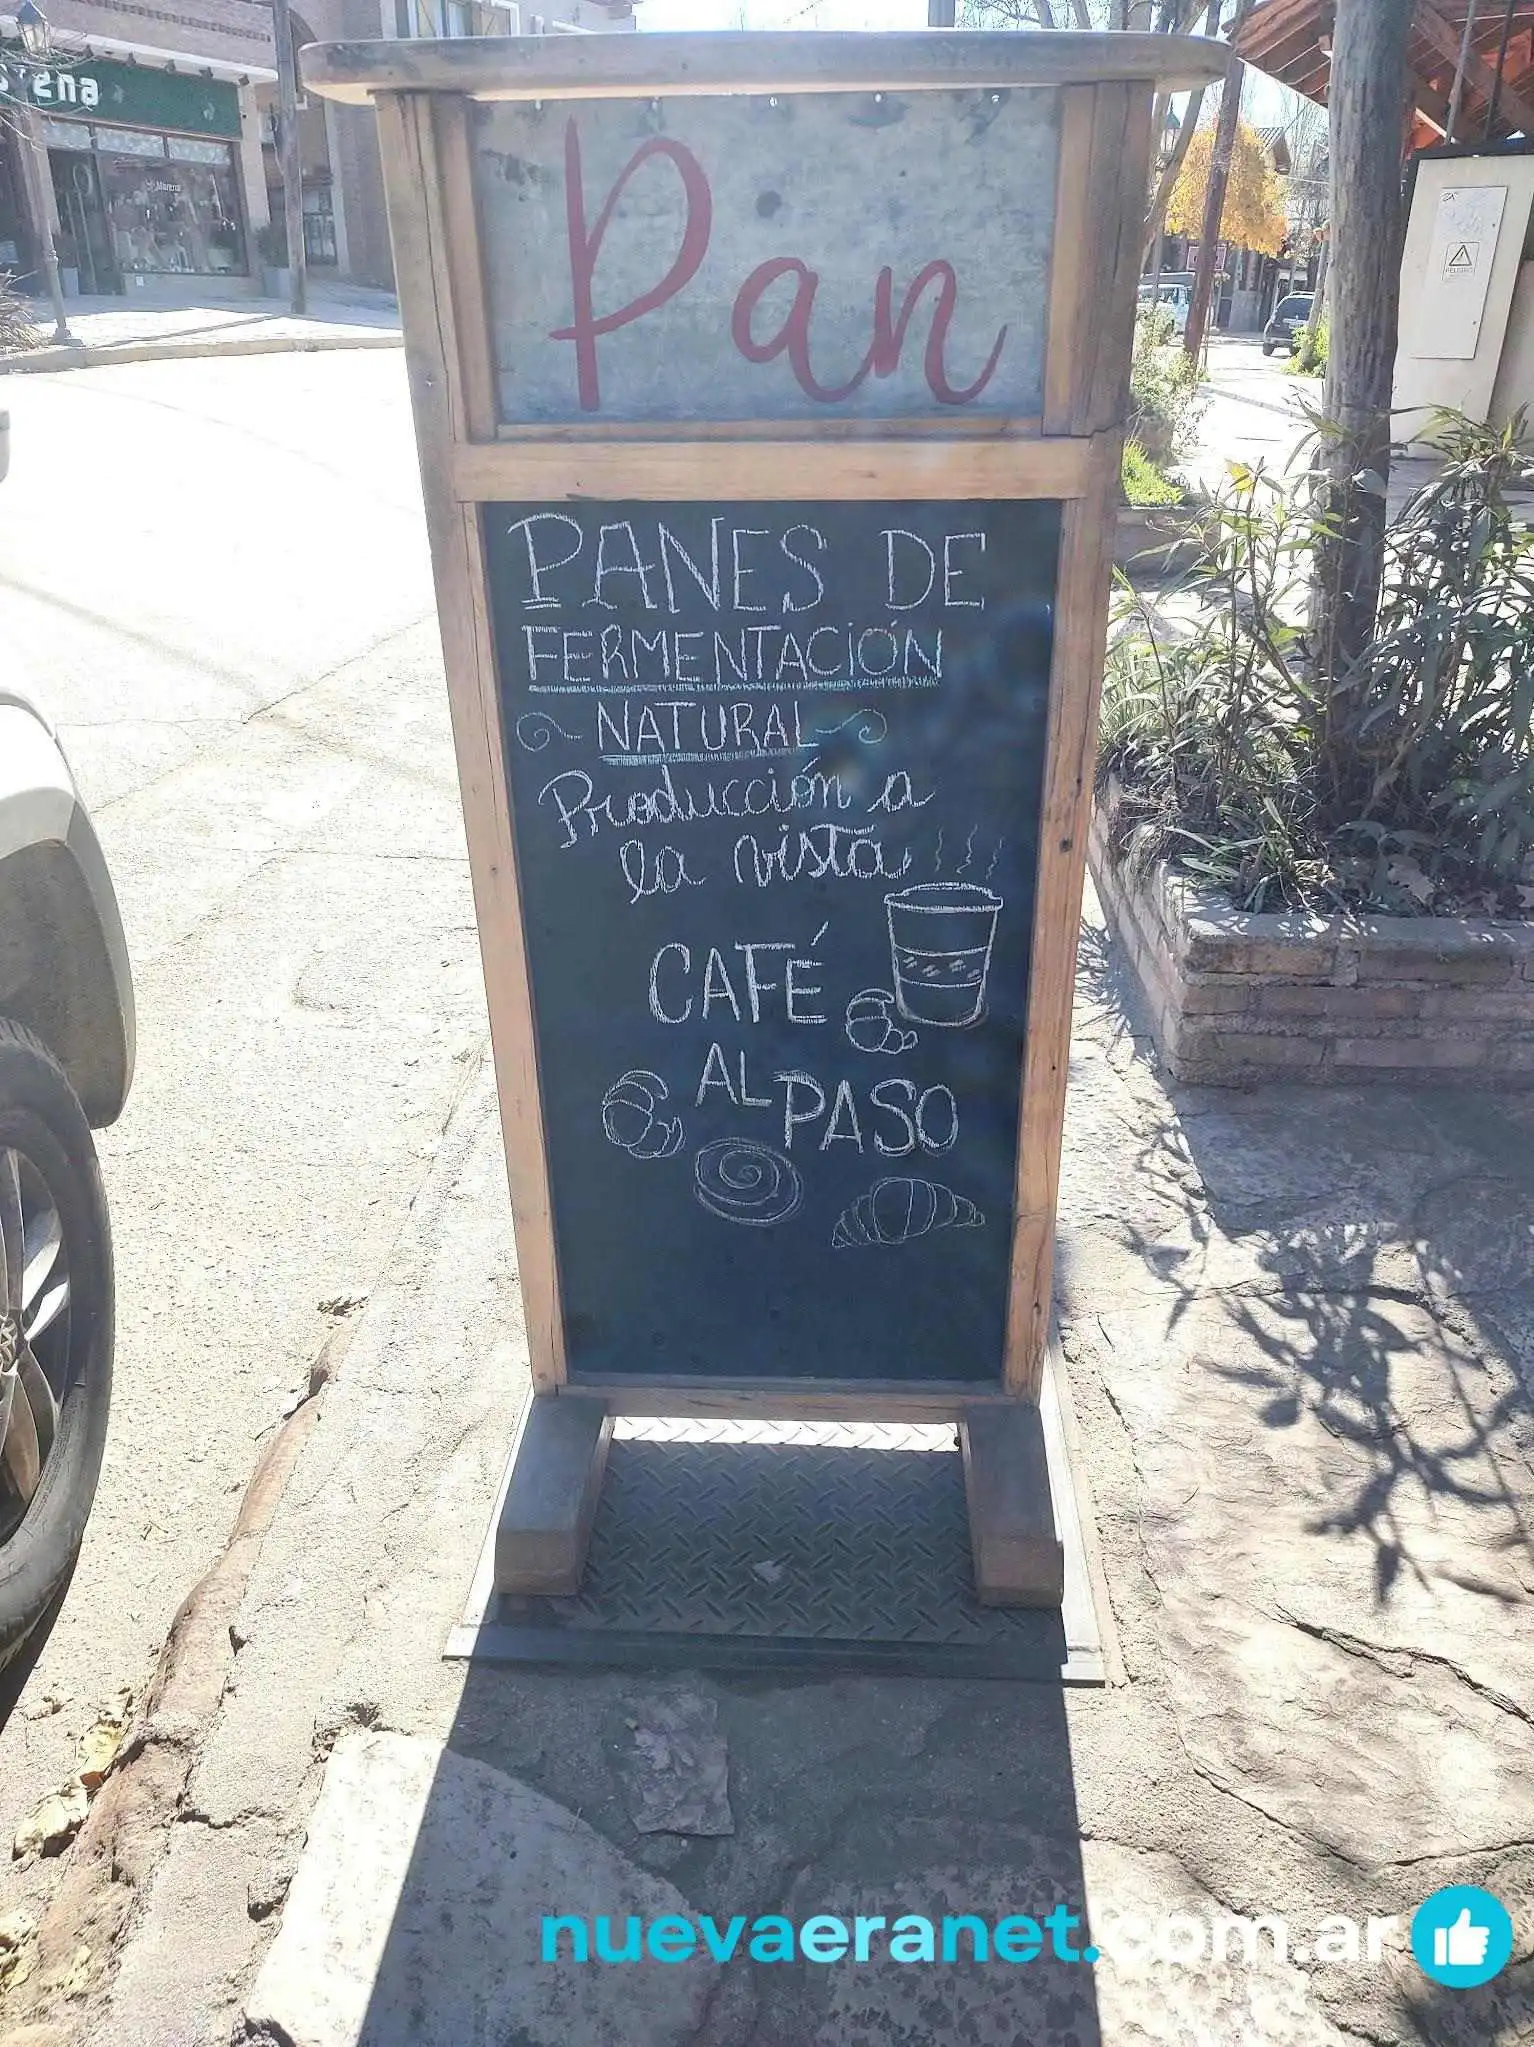 Morena
Pan
PELIGRO
PANES DE
FERMENTACIÓN
NATURAL
Producción a
la vista
CAFÉ
AL PASO
nuevaeranet.com.ar